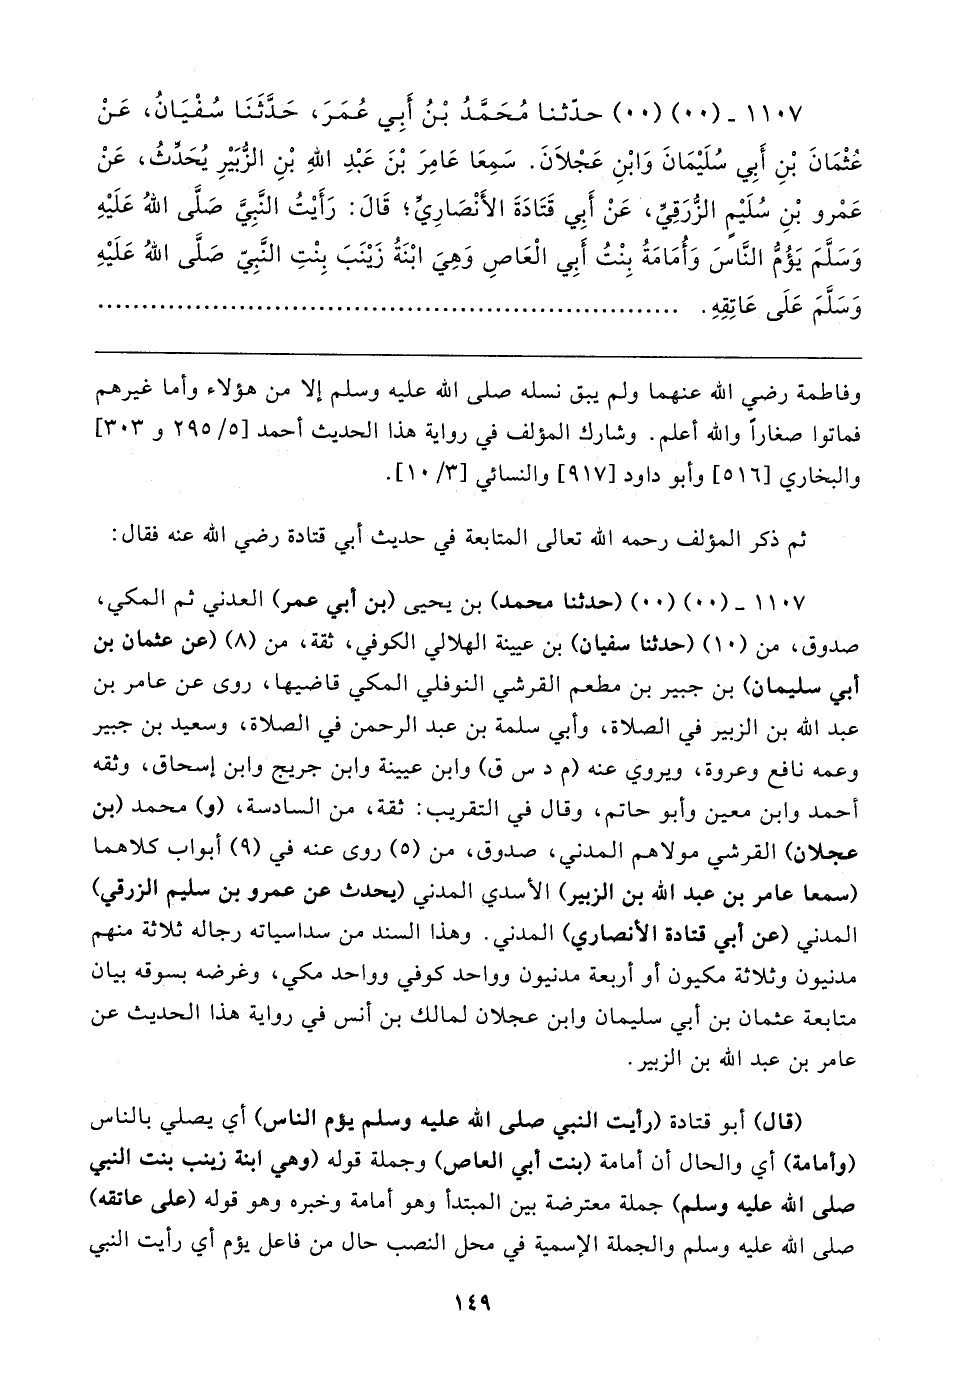 ١١٠٧ ـ (٠٠) (٠٠) حدّثنا مُحَمَّدُ بْنُ أَبِي عُمَرَ، حَدَّثَنَا سُفْيَانُ، عَنْ
عُثْمَانَ بْنِ أَبِي سُلَيْمَانَ وَابْنِ عَجْلَانَ. سَمِعَا عَامِرَ بْنَ عَبْدِ اللهِ بْنِ الزُّبَيْرِ يُحَدِّثُ، عَنْ
عَمْرِو بْنِ سُلَيْمٍ الزُّرَقِيِّ، عَنْ أَبِي قَتَادَةَ الأَنْصَارِيِّ؛ قَالَ: رَأَيْتُ النَّبِيَّ صَلَّى اللهُ عَلَيْهِ
وَسَلَّمَ يَؤُمُّ النَّاسَ وَأُمَامَةُ بِنْتُ أَبِي الْعَاصِ وَهِيَ ابْنَةُ زَيْنَبَ بِنْتِ النَّبِيِّ صَلَّى اللهُ عَلَيْهِ
وَسَلَّمَ عَلَى عَاتِقِهِ. ................................................................
وفاطمة رضي الله عنهما ولم يبق نسله صلى الله عليه وسلم إلا من هؤلاء وأما غيرهم
فماتوا صغاراً والله أعلم. وشارك المؤلف في رواية هذا الحديث أحمد [٥/ ٢٩٥ و ٣٠٣]
والبخاري [٥١٦] وأبو داود [٩١٧] والنسائي [٣/ ١٠].
ثم ذكر المؤلف رحمه الله تعالى المتابعة في حديث أبي قتادة رضي الله عنه فقال:
١١٠٧ ـ (٠٠) (٠٠) (حدثنا محمد) بن يحيى (بن أبي عمر) العدني ثم المكي،
صدوق، من (١٠) (حدثنا سفيان) بن عيينة الهلالي الكوفي، ثقة، من (٨) (عن عثمان بن
أبي سليمان) بن جبير بن مطعم القرشي النوفلي المكي قاضيها، روى عن عامر بن
عبد الله بن الزبير في الصلاة، وأبي سلمة بن عبد الرحمن في الصلاة، وسعيد بن جبير
وعمه نافع وعروة، ويروي عنه (م د س ق) وابن عيينة وابن جريج وابن إسحاق، وثقه
أحمد وابن معين وأبو حاتم، وقال في التقريب: ثقة، من السادسة، (و) محمد (بن
عجلان) القرشي مولاهم المدني، صدوق، من (٥) روى عنه في (٩) أبواب كلاهما
(سمعا عامر بن عبد الله بن الزبير) الأسدي المدني (يحدث عن عمرو بن سليم الزرقي)
المدني (عن أبي قتادة الأنصاري) المدني. وهذا السند من سداسياته رجاله ثلاثة منهم
مدنيون وثلاثة مكيون أو أربعة مدنيون وواحد كوفي وواحد مكي، وغرضه بسوقه بيان
متابعة عثمان بن أبي سليمان وابن عجلان لمالك بن أنس في رواية هذا الحديث عن
عامر بن عبد الله بن الزبير.
(قال) أبو قتادة (رأيت النبي صلى الله عليه وسلم يؤم الناس) أي يصلي بالناس
(وأمامة) أي والحال أن أمامة (بنت أبي العاص) وجملة قوله (وهي ابنة زينب بنت النبي
صلى الله عليه وسلم) جملة معترضة بين المبتدأ وهو أمامة وخبره وهو قوله (على عاتقه)
صلى الله عليه وسلم والجملة الإسمية في محل النصب حال من فاعل يؤم أي رأيت النبي
١٤٩